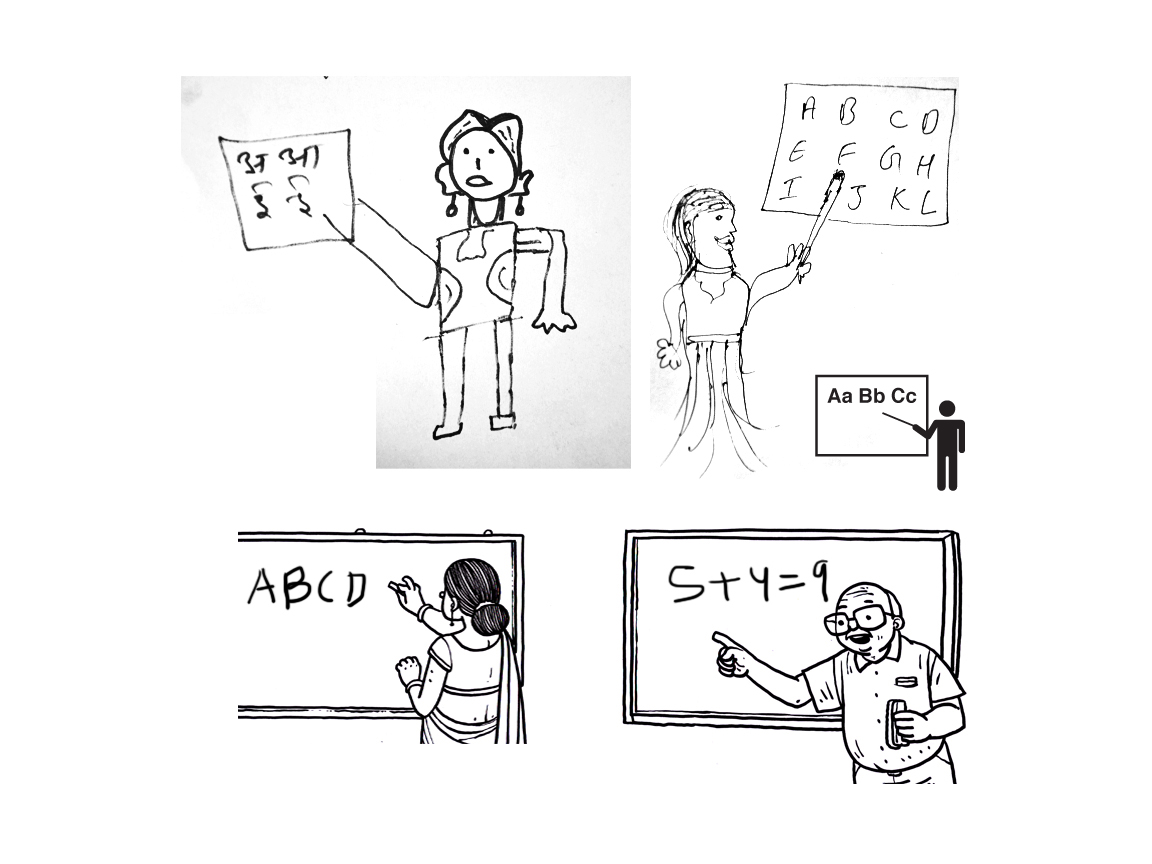 अ आ
इ ई
A B C D
E F G H
I J K L
Aa Bb Cc
ABCD
5+4=9